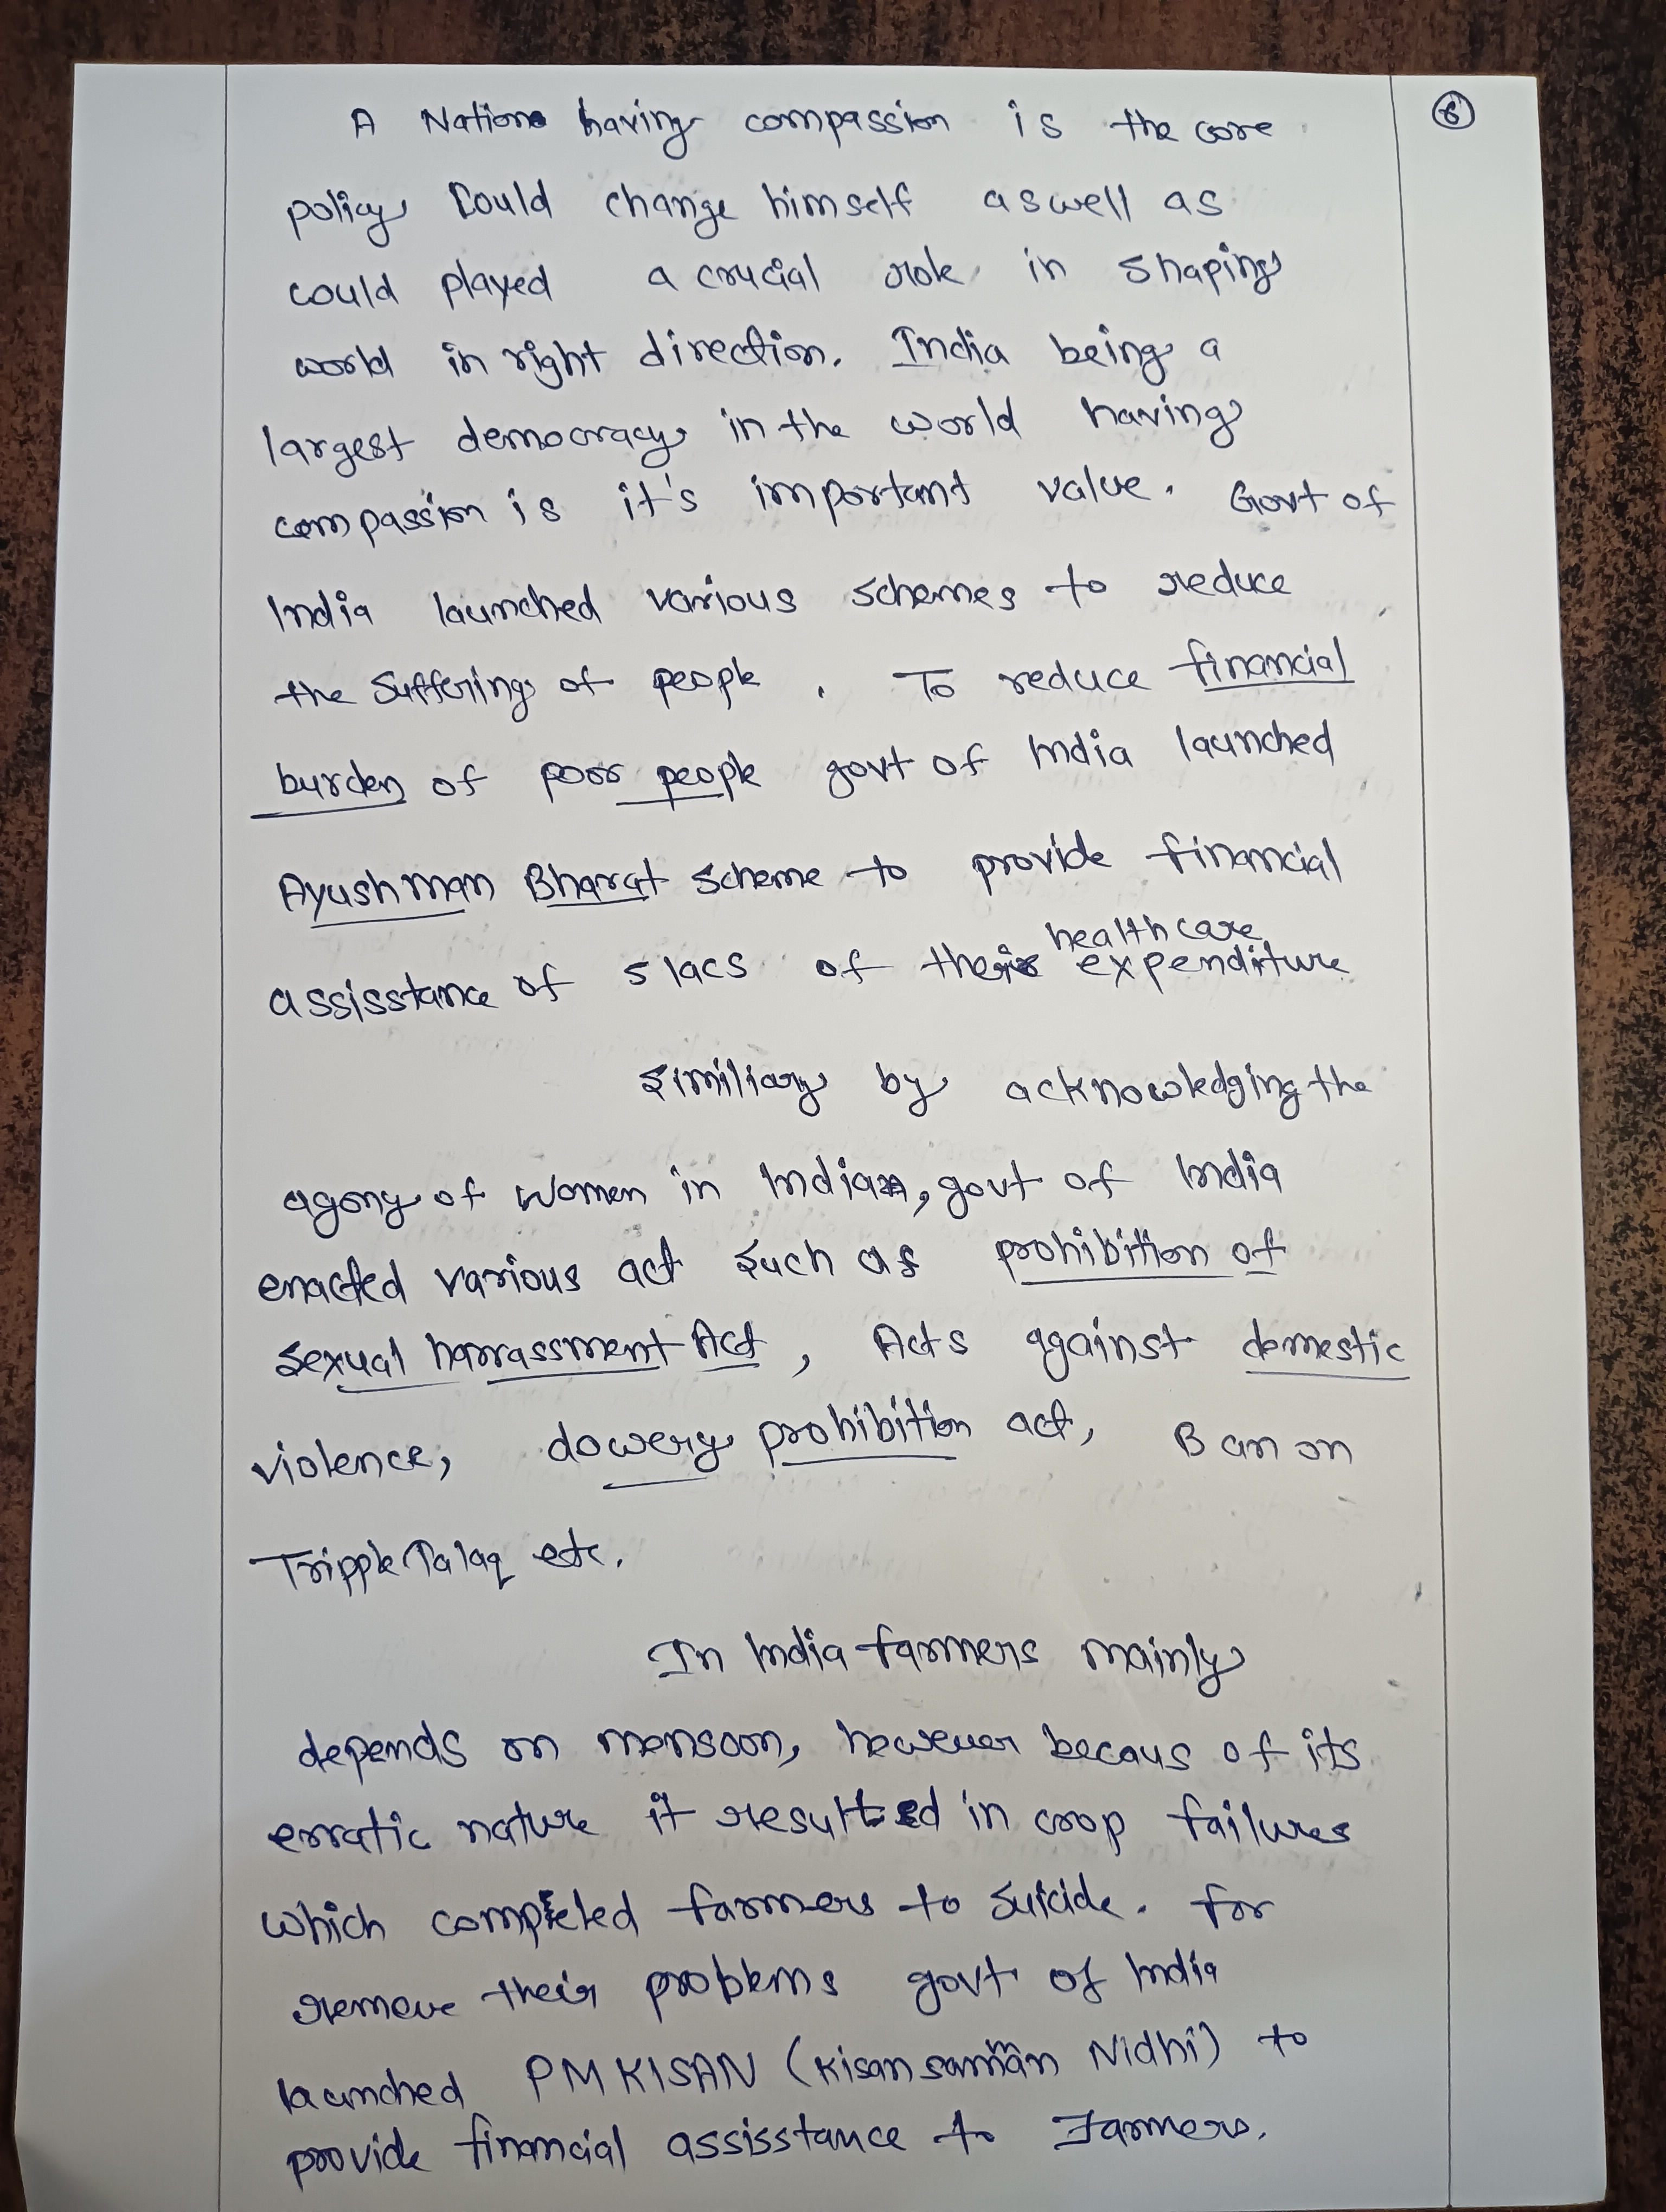 6
A Nation having compassion is the core
policy could change himself aswell as
could played a crucial role in shaping
world in right direction. India being a
largest democracy in the world having
compassion is it's important value. Govt of
India launched various schemes to reduce
the suffering of people. To reduce financial
burden of poor people govt of India launched
Ayushman Bharat scheme to provide financial
assisstance of 5 lacs of their healthcare expenditure
Similiary by acknowledging the
agony of women in India, govt of India
enacted various act such as prohibition of
sexual harrassment Act, Acts against domestic
violence, dowery prohibition act, Ban on
Tripple Talaq etc.
In India farmers mainly
depends on monsoon, however becaus of its
erratic nature it resulted in crop failures
which compleled farmers to suicide. For
remove their problems govt of India
launched PM KISAN (Kisan samman Nidhi) to
provide financial assisstance to Farmers.